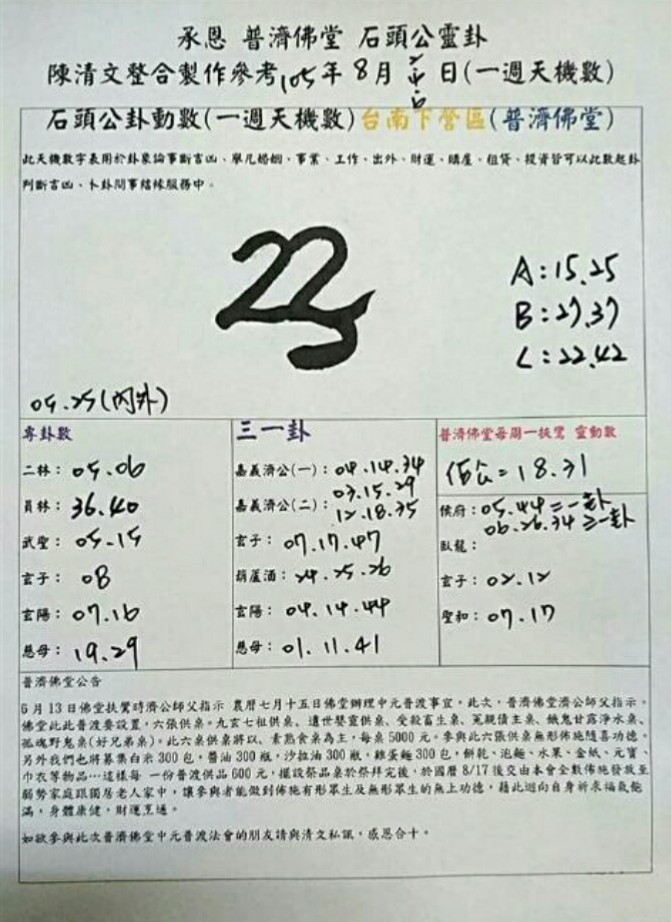 承恩 普濟佛堂 石頭公靈卦
陳清文整合製作參考105年8月 日(一週天機數)
石頭公卦動數(一週天機數)台南下營區(普濟佛堂)
此天機數字表用於卦象論事斷吉凶、舉凡婚姻、事業、工作、出外、財運、購屋、租賃、投資皆可以此數起卦
判斷吉凶、卜卦問事結緣服務中。
22
A:15.25
B:27.37
C:22.42
05.25(內外)
專卦數
二林:05.06
員林:36.40
武聖:05.15
玄子:08
玄陽:07.16
慈母:19.29
三一卦
嘉義濟公(一):04.14.34
嘉義濟公(二):03.15.29
12.18.35
玄子:07.17.47
葫蘆酒:24.25.26
玄陽:04.14.44
慈母:01.11.41
普濟佛堂每周一扶鸞 靈動數
佰公=18.31
候府:05.44二一卦
06.26.34三一卦
臥龍:
玄子:02.12
聖和:07.17
普濟佛堂公告
6月13日佛堂扶鸞時濟公師父指示 農曆七月十五日佛堂辦理中元普渡事宜,此次,普濟佛堂濟公師父指示,
佛堂此此普渡要設置,六張供桌。九玄七祖供桌、遺世嬰靈供桌、受殺畜生桌、冤親債主桌、餓鬼甘露淨水桌、
孤魂野鬼桌(好兄弟桌)。此六桌供桌將以、素熟食桌為主,每桌5000元。參與此六張供桌無形佈施隨喜功德。
另外我們也將募集白米300包,醬油300瓶,沙拉油300瓶,雞蛋麵300包,餅乾、泡麵、水果、金紙、元寶、
巾衣等物品…這樣每 一份普渡供品600元,擺設祭品桌於祭拜完後,於國曆8/17後交由本會全數佈施發放至
弱勢家庭跟獨居老人家中,讓參與者能做到佈施有形眾生及無形眾生的無上功德,藉此迴向自身祈求福氣飽
滿,身體康健,財運亨通。
如欲參與此次普濟佛堂中元普渡法會的朋友請與清文私訊,感恩合十。